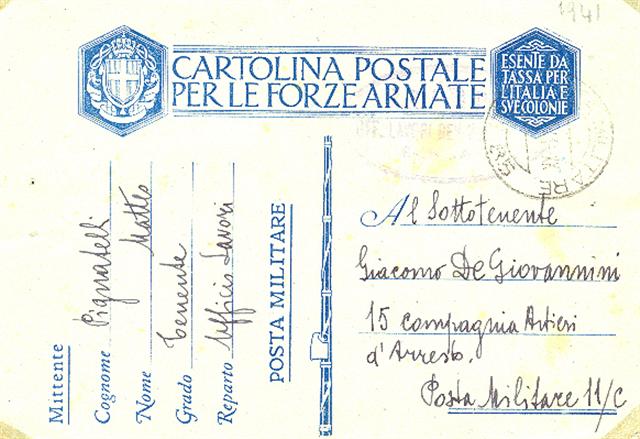 1941
CARTOLINA POSTALE
PER LE FORZE ARMATE
ESENTE DA
TASSA PER
L'ITALIA E
SVE COLONIE
Mittente
Cognome Pignatelli
Nome Matteo
Grado Tenente
Reparto Ufficio Lavori
POSTA MILITARE
Al Sottotenente
Giacomo De Giovannini
15 compagnia Artieri
d'Arresto.
Posta Militare 11/C